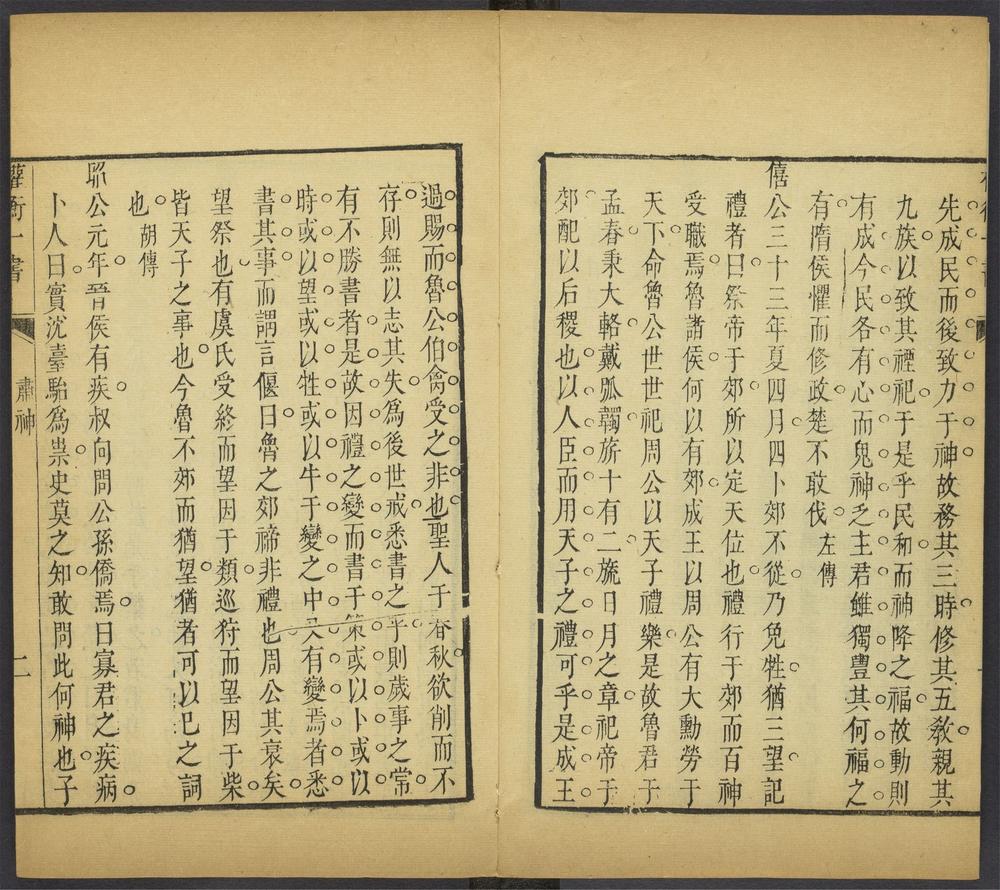 先成民而後致力于神故務其三時修其五敎親其
九族以致其禋祀于是乎民和而神降之福故動則
有成今民各有心而鬼神乏主君雖獨豐其何福之
有隋侯懼而修政楚不敢伐 左傳
僖公三十三年夏四月四卜郊不從乃免牲猶三望記
禮者曰祭帝于郊所以定天位也禮行于郊而百神
受職焉魯諸侯何以有郊成王以周公有大勳勞于
天下命魯公世世祀周公以天子禮樂是故魯君于
孟春乘大輅戴弧韣旂十有二旒日月之章祀帝于
郊配以后稷也以人臣而用天子之禮可乎是成王
過賜而魯公伯禽受之非也聖人于春秋欲削而不
存則無以志其失爲後世戒悉書之乎則歲事之常
有不勝書者是故因禮之變而書于策或以卜或以
時或以望或以牲或以牛于變之中又有變焉者悉
書其事而謂言偃曰魯之郊禘非禮也周公其衰矣
望祭也有虞氏受終而望因于類巡狩而望因于柴
皆天子之事也今魯不郊而猶望猶者可以已之詞
也 胡傳
昭公元年晉侯有疾叔向問公孫僑焉曰寡君之疾病
卜人曰實沈臺駘爲祟史莫之知敢問此何神也子
權衡一書
肅神
二